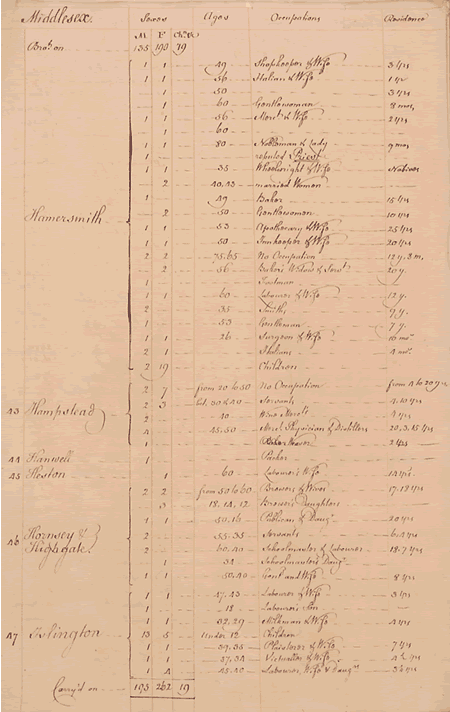 Middlesex. Sexes Ages Occupations Residence
M F
Bro.t on 135 190 79
1 1 49 Shopkeeper & Wife 3 yrs
1 1 56 Italian & Wife 1 yr
1 50 3 yrs
1 60 Gentlewoman 8 mos.
1 1 56 Mercht. & Wife 2 yrs
1 60
1 1 80 Nobleman & Lady 9 mos
1 reputed a Priest
1 1 35 Wheelwright & Wife Natives
2 40.43 married Women
1 49 Baker 15 yrs
Hamersmith 2 50 Gentlewomen 10 yrs
1 1 53 Apothecary & Wife 25 yrs
1 1 50 Innkeeper & Wife 20 yrs
2 2 75.65 No Occupation 12 y. 8 m.
2 56 Bakers Widow & Servt. 20 y.
1 Footman
1 1 60 Labourer & Wife 12 y.
2 35 Smiths 9 y.
1 53 Gentleman 7 y.
1 1 26 Surgeon & Wife 10 mo.
2 1 Italians 4 mo.
2 19 Children
2 7 from 20 to 50 No Occupation from 4 to 20 yrs
43 Hampstead 2 3 bet. 30 & 40 Servants 4.10 yrs
2 40 Wine Merchts 4 yrs
4 45.50 Mercht. Physician & Distillers 20.3.15 yrs
1 2 yrs
44 Hanwell 1
45 Heston 1 60 Labourer's Wife
2 2 from 50 to 60 Brewers & Wives 17.18 yrs
3 18.14.12 Brewer's Daughters
1 1 50.16 Publican & Daugr. 20 yrs
46 Hornsey & 2 55.35 Servants 6.4 yrs
Highgate. 2 60.40 Schoolmaster & Labourer 18.7 yrs
1 34 Schoolmaster's Daugr.
1 1 50.40 Gent. and Wife 8 yrs
1 1 47.43 Labourer & Wife 3 yrs
1 18 Labourer's Son
1 1 32.29 Milkman & Wife 4 yrs
47 Islington 13 5 under 12 Children
1 1 39.35 Plaisterer & Wife 7 yrs
1 1 37.34 Victualler & Wife 4½ yrs
1 4 Labourer, Wife & Daugrs.
Carry'd on 195 262 19